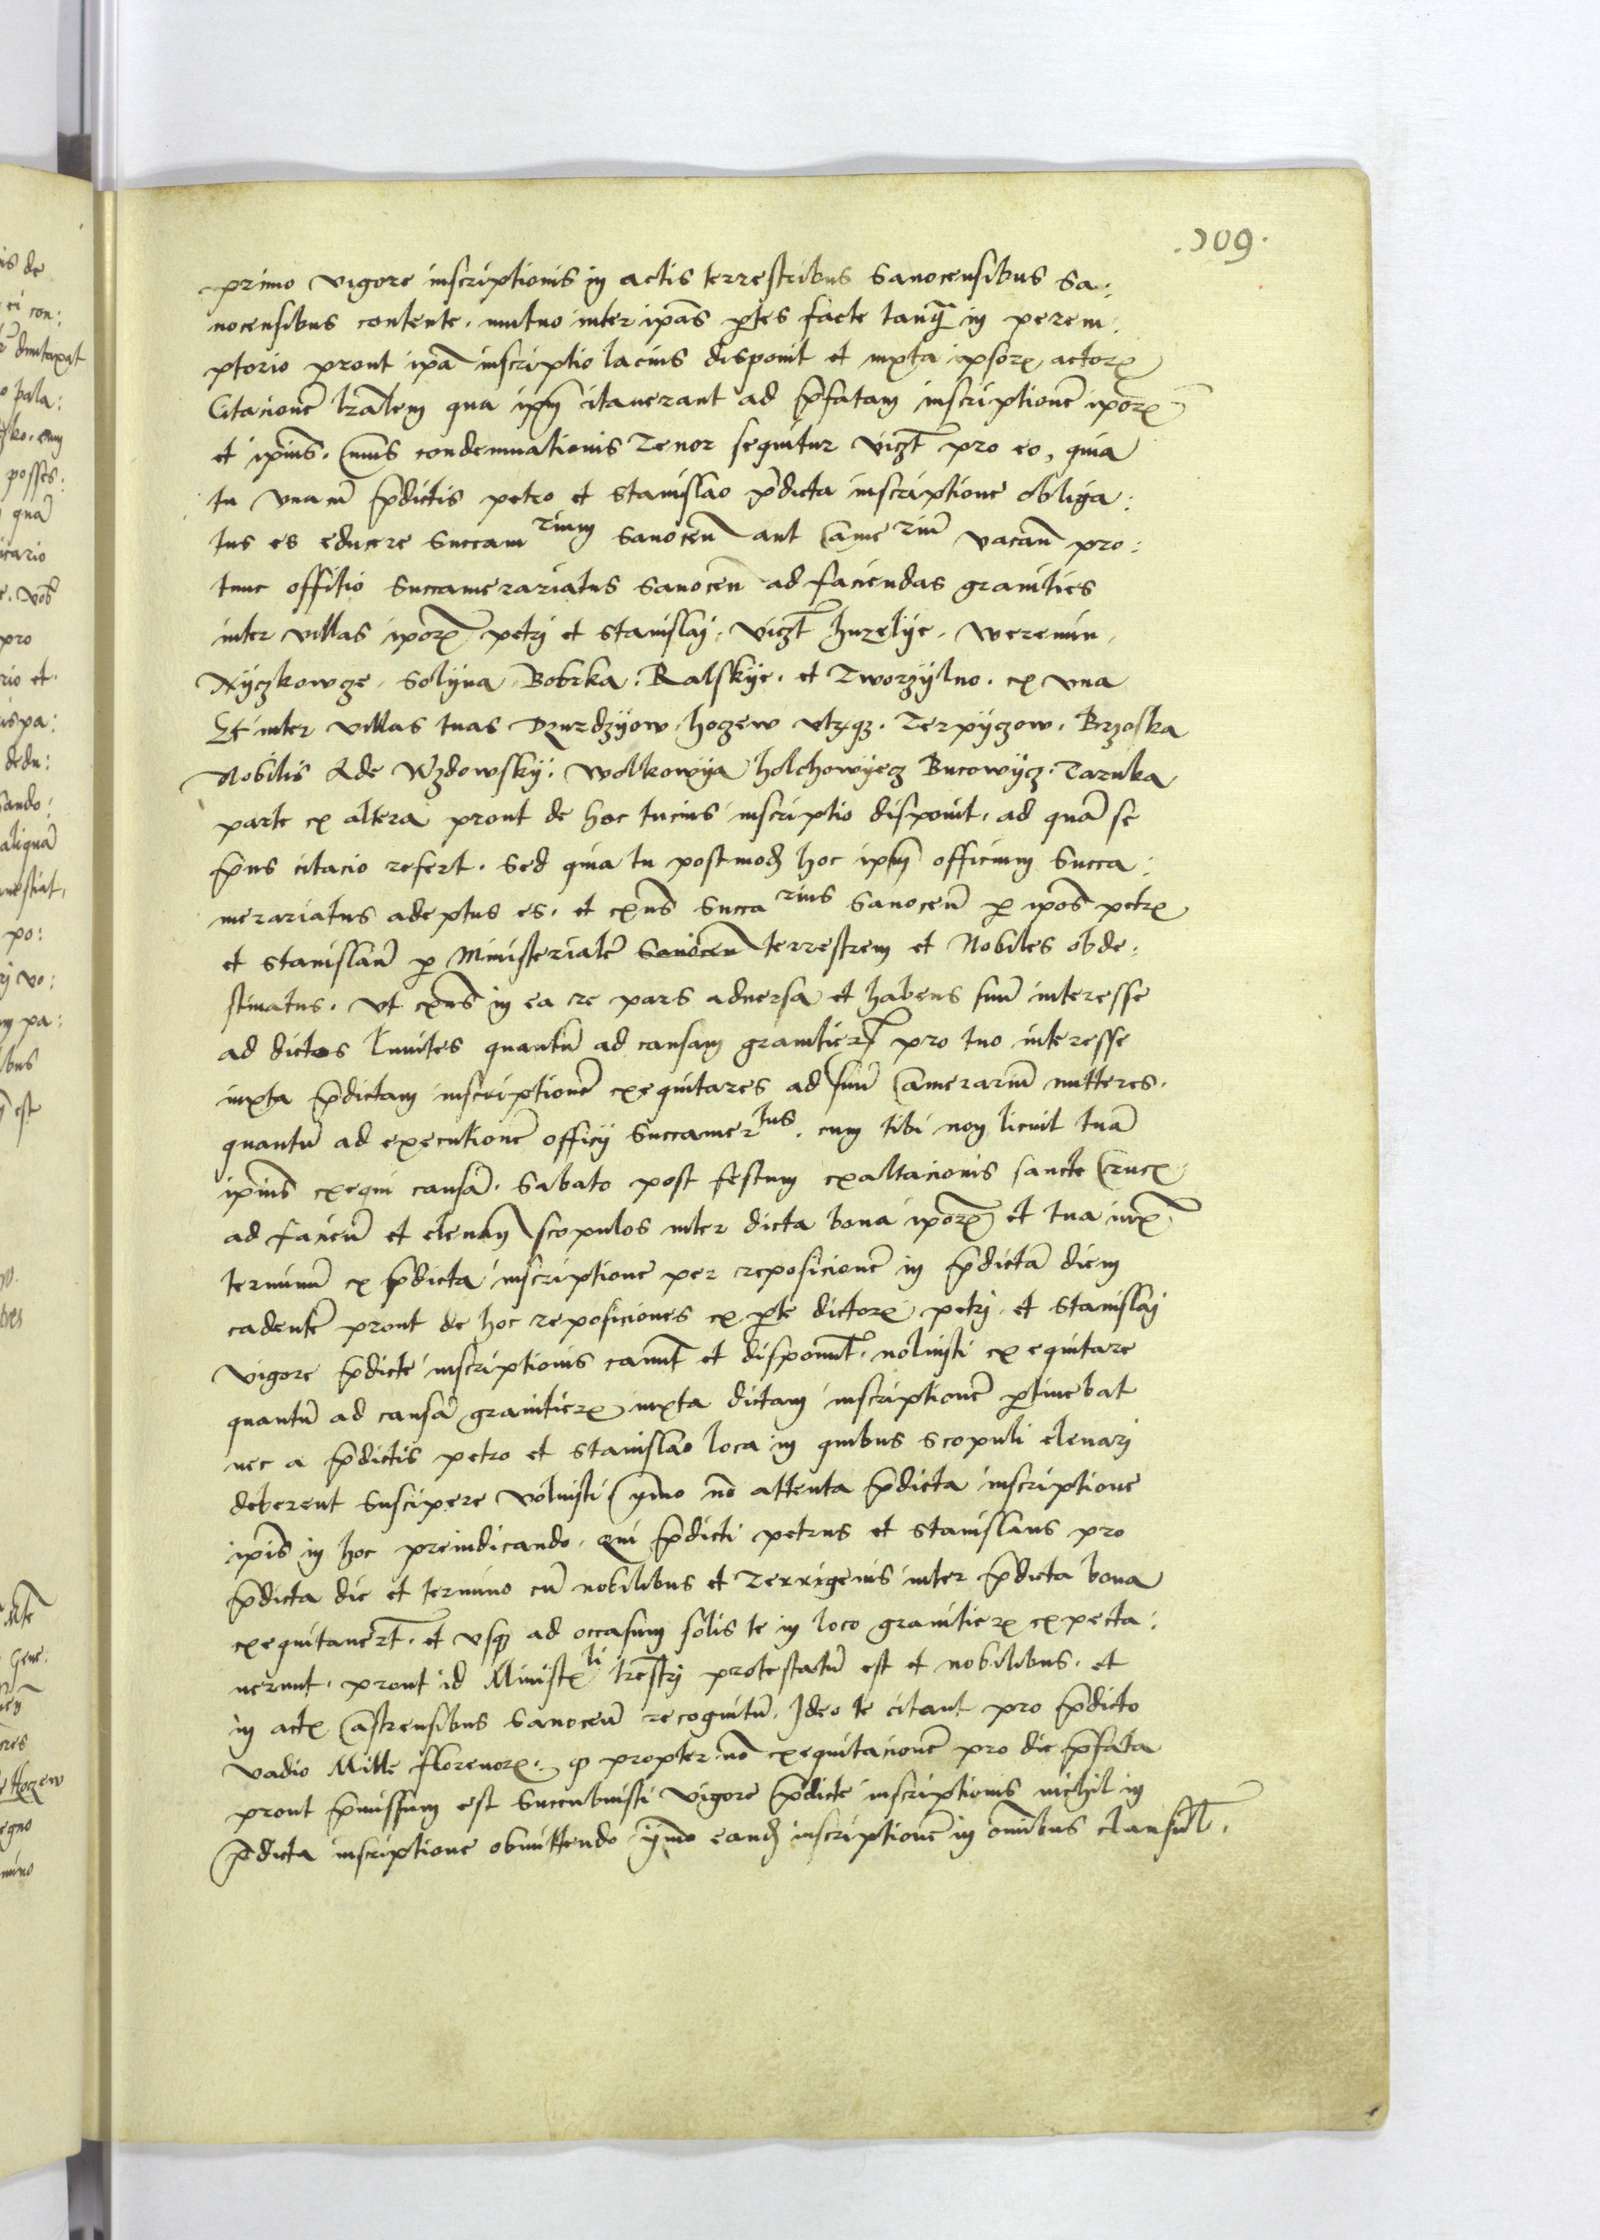 209.
primo vigore inscriptionis in actis terrestribus Sanocensibus Sa:
nocensibus contente. mutuo inter ip̄as p̱tes facte tanq̄ in perem:
ptorio prout ip̄a inscriptio lacius disponit et iuxta ipsorꝝ actorꝝ
Citacionē lr̄alem qua ip̄m citauerant ad p̄fatam inscriptionē ip̄orꝝ
et ip̄ius. Cuius condemnationis Tenor sequitur vigꝫt pro eo, quia
tu vnacū p̄dictis petro et Stanislao p̄dicta inscriptione obliga:
tus es educere Succam rium Sanoceñ aut Came riū vacañ pro:
tunc offitio Succamerariatus Sanoceñ ad faciendas granities
inter villas ip̄orꝝ petrj et Stanislaj. vigꝫt huzelye. weremin.
Nyczkowcze. Solyna Bobrka. Ralskye. et Tworzylno. ex vna
Et inter villas tuas Dzurdzyow. hoczew vtrqꝫ. Terpyczow. Brzoska
Nobilis Ade Wzdowsky. wolkowya holchowyecz Bucowycz. Tarnka
parte ex altera prout de hoc tucius inscriptio disponit. ad quā se
p̄ns citacio refert. Sed quia tu postmodꝫ hoc ip̄m officium Succa:
merariatus adeptus es. et exñs Succa rius Sanoceñ ꝑ ip̄os petrꝝ
et Stanislaū ꝑ Ministerialē Sanoceñ terrestrem et Nobiles obde:
stinatus. vt exñs in ea re pars aduersa et habens suū interesse
ad dictos limites quantū ad causam granicierꝝ pro tuo interesse
iuxta p̄dictam inscriptionē exequitares ad suū Camerariū mitteres.
quantū ad executionē officij Succamer tus. cum tibi non licuit tuā
ip̄ius exequi causā. Sabato post festum exaltacionis sancte Crucꝭ
ad facieñ et eleuañ scopulos inter dicta bona ip̄orꝝ et tua iuxꝭ
terminū ex p̄dicta inscriptione per reposicionē in p̄dictā diem
cadentē prout de hoc reposiciones ex p̱te dictorꝝ petrj et Stanislaj
vigore p̄dicte inscriptionis canūt et disponūt. noluisti exequitare
quantū ad causā granicierꝝ iuxta dictam inscriptionē ꝑtinebat
nec a p̄dictis petro et Stanislao loca in quibus Scopuli eleuarj
deberent Suscipere voluisti ymo nō attenta p̄dicta inscriptione
ip̄is in hoc preiudicando. Qui p̄dicti petrus et Stanislaus pro
p̄dicta die et termino cū nobilibus et Terrigenis inter p̄dicta bona
exequitauer̄t. et vsqꝫ ad occasum solis te in loco granicierꝝ expecta:
uerunt. prout id Ministꝭ li tr̄estrj protestatū est et nobilibus. et
in actꝭ Castrensibus Sanoceñ recognitū. Ideo te citant pro p̄dicto
vadio Mille florenorꝝ. qꝫ propter nō exequitacionē pro die p̄fata
prout p̄missum est Succubuisti vigore p̄dicte inscriptionis nichil in
p̄dicta inscriptione obmittendo ymo eandꝫ inscriptionē in oībus clausul̄.